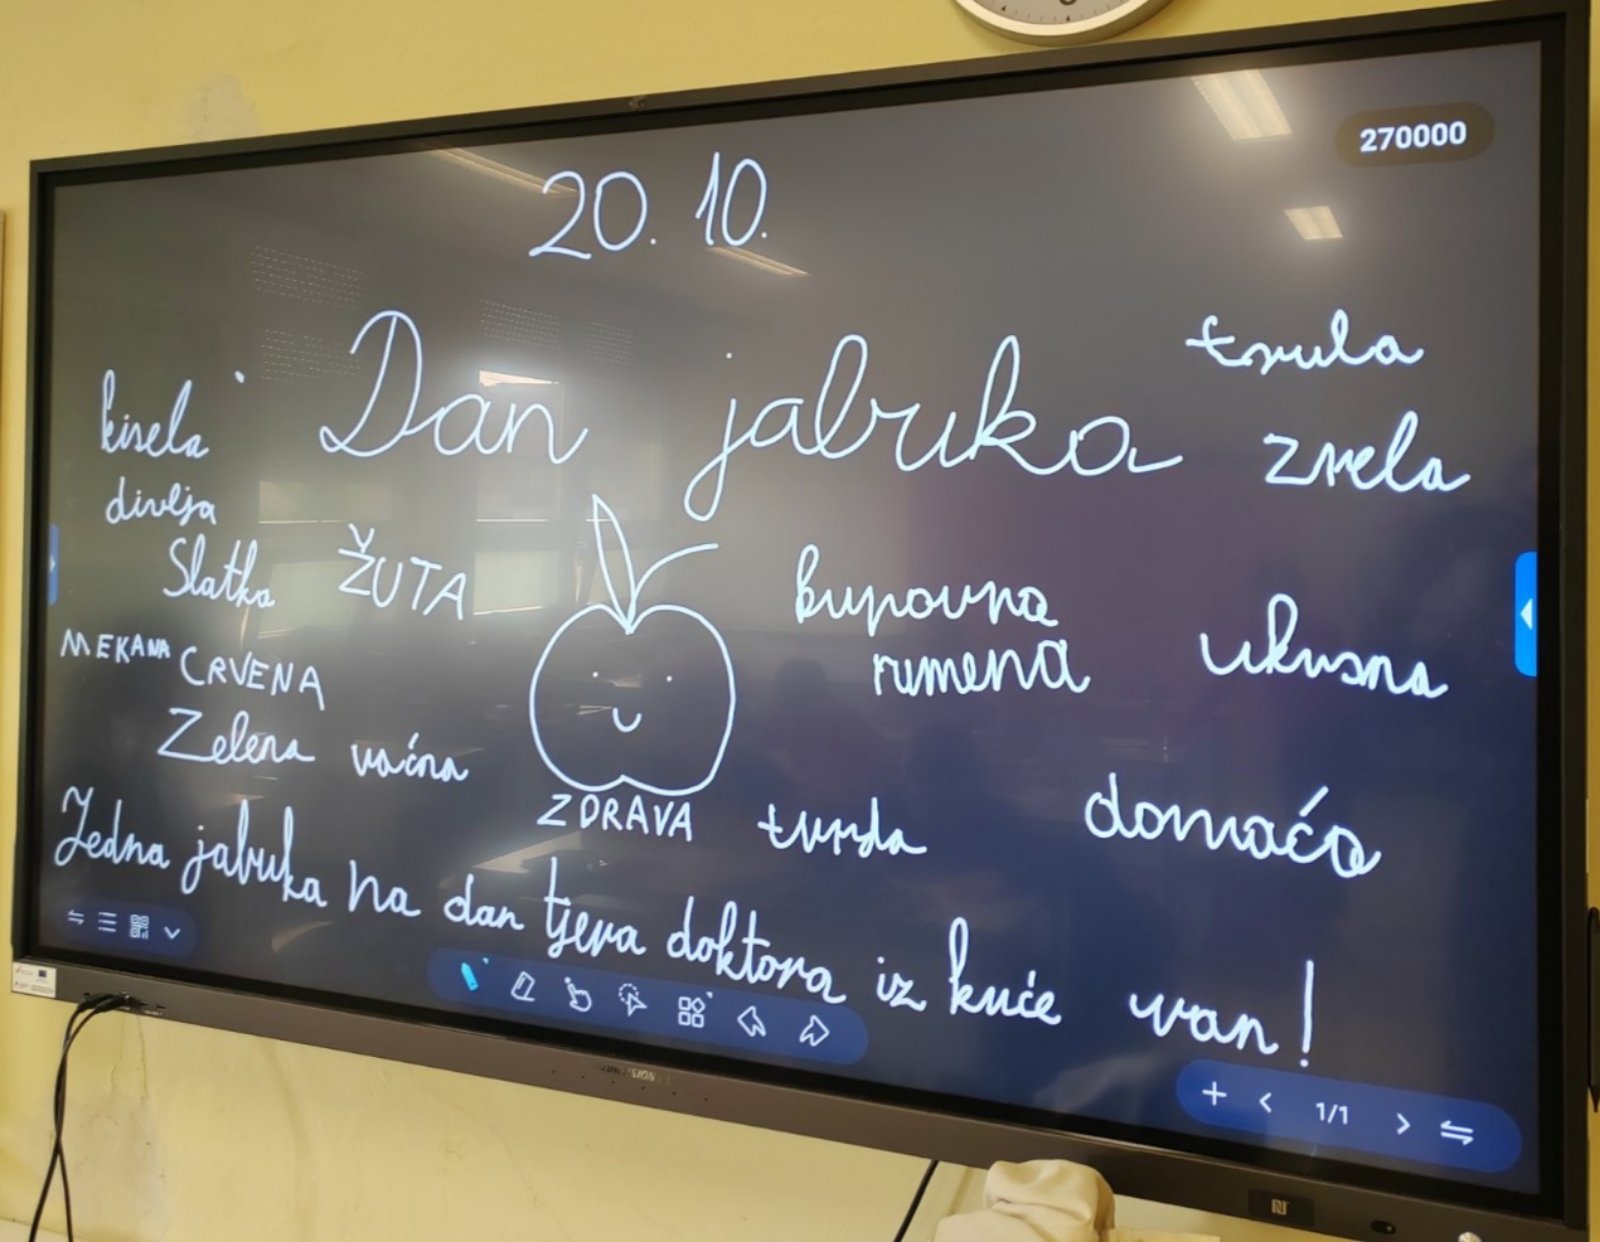 270000
20. 10.
Dan jabuka
trula
kisela
zrela
divlja
Slatka
ŽUTA
kupovna
MEKANA
CRVENA
rumena
ukusna
Zelena
voćna
ZDRAVA
tvrda
domaća
Jedna jabuka na dan tjera doktora iz kuće van!
1/1